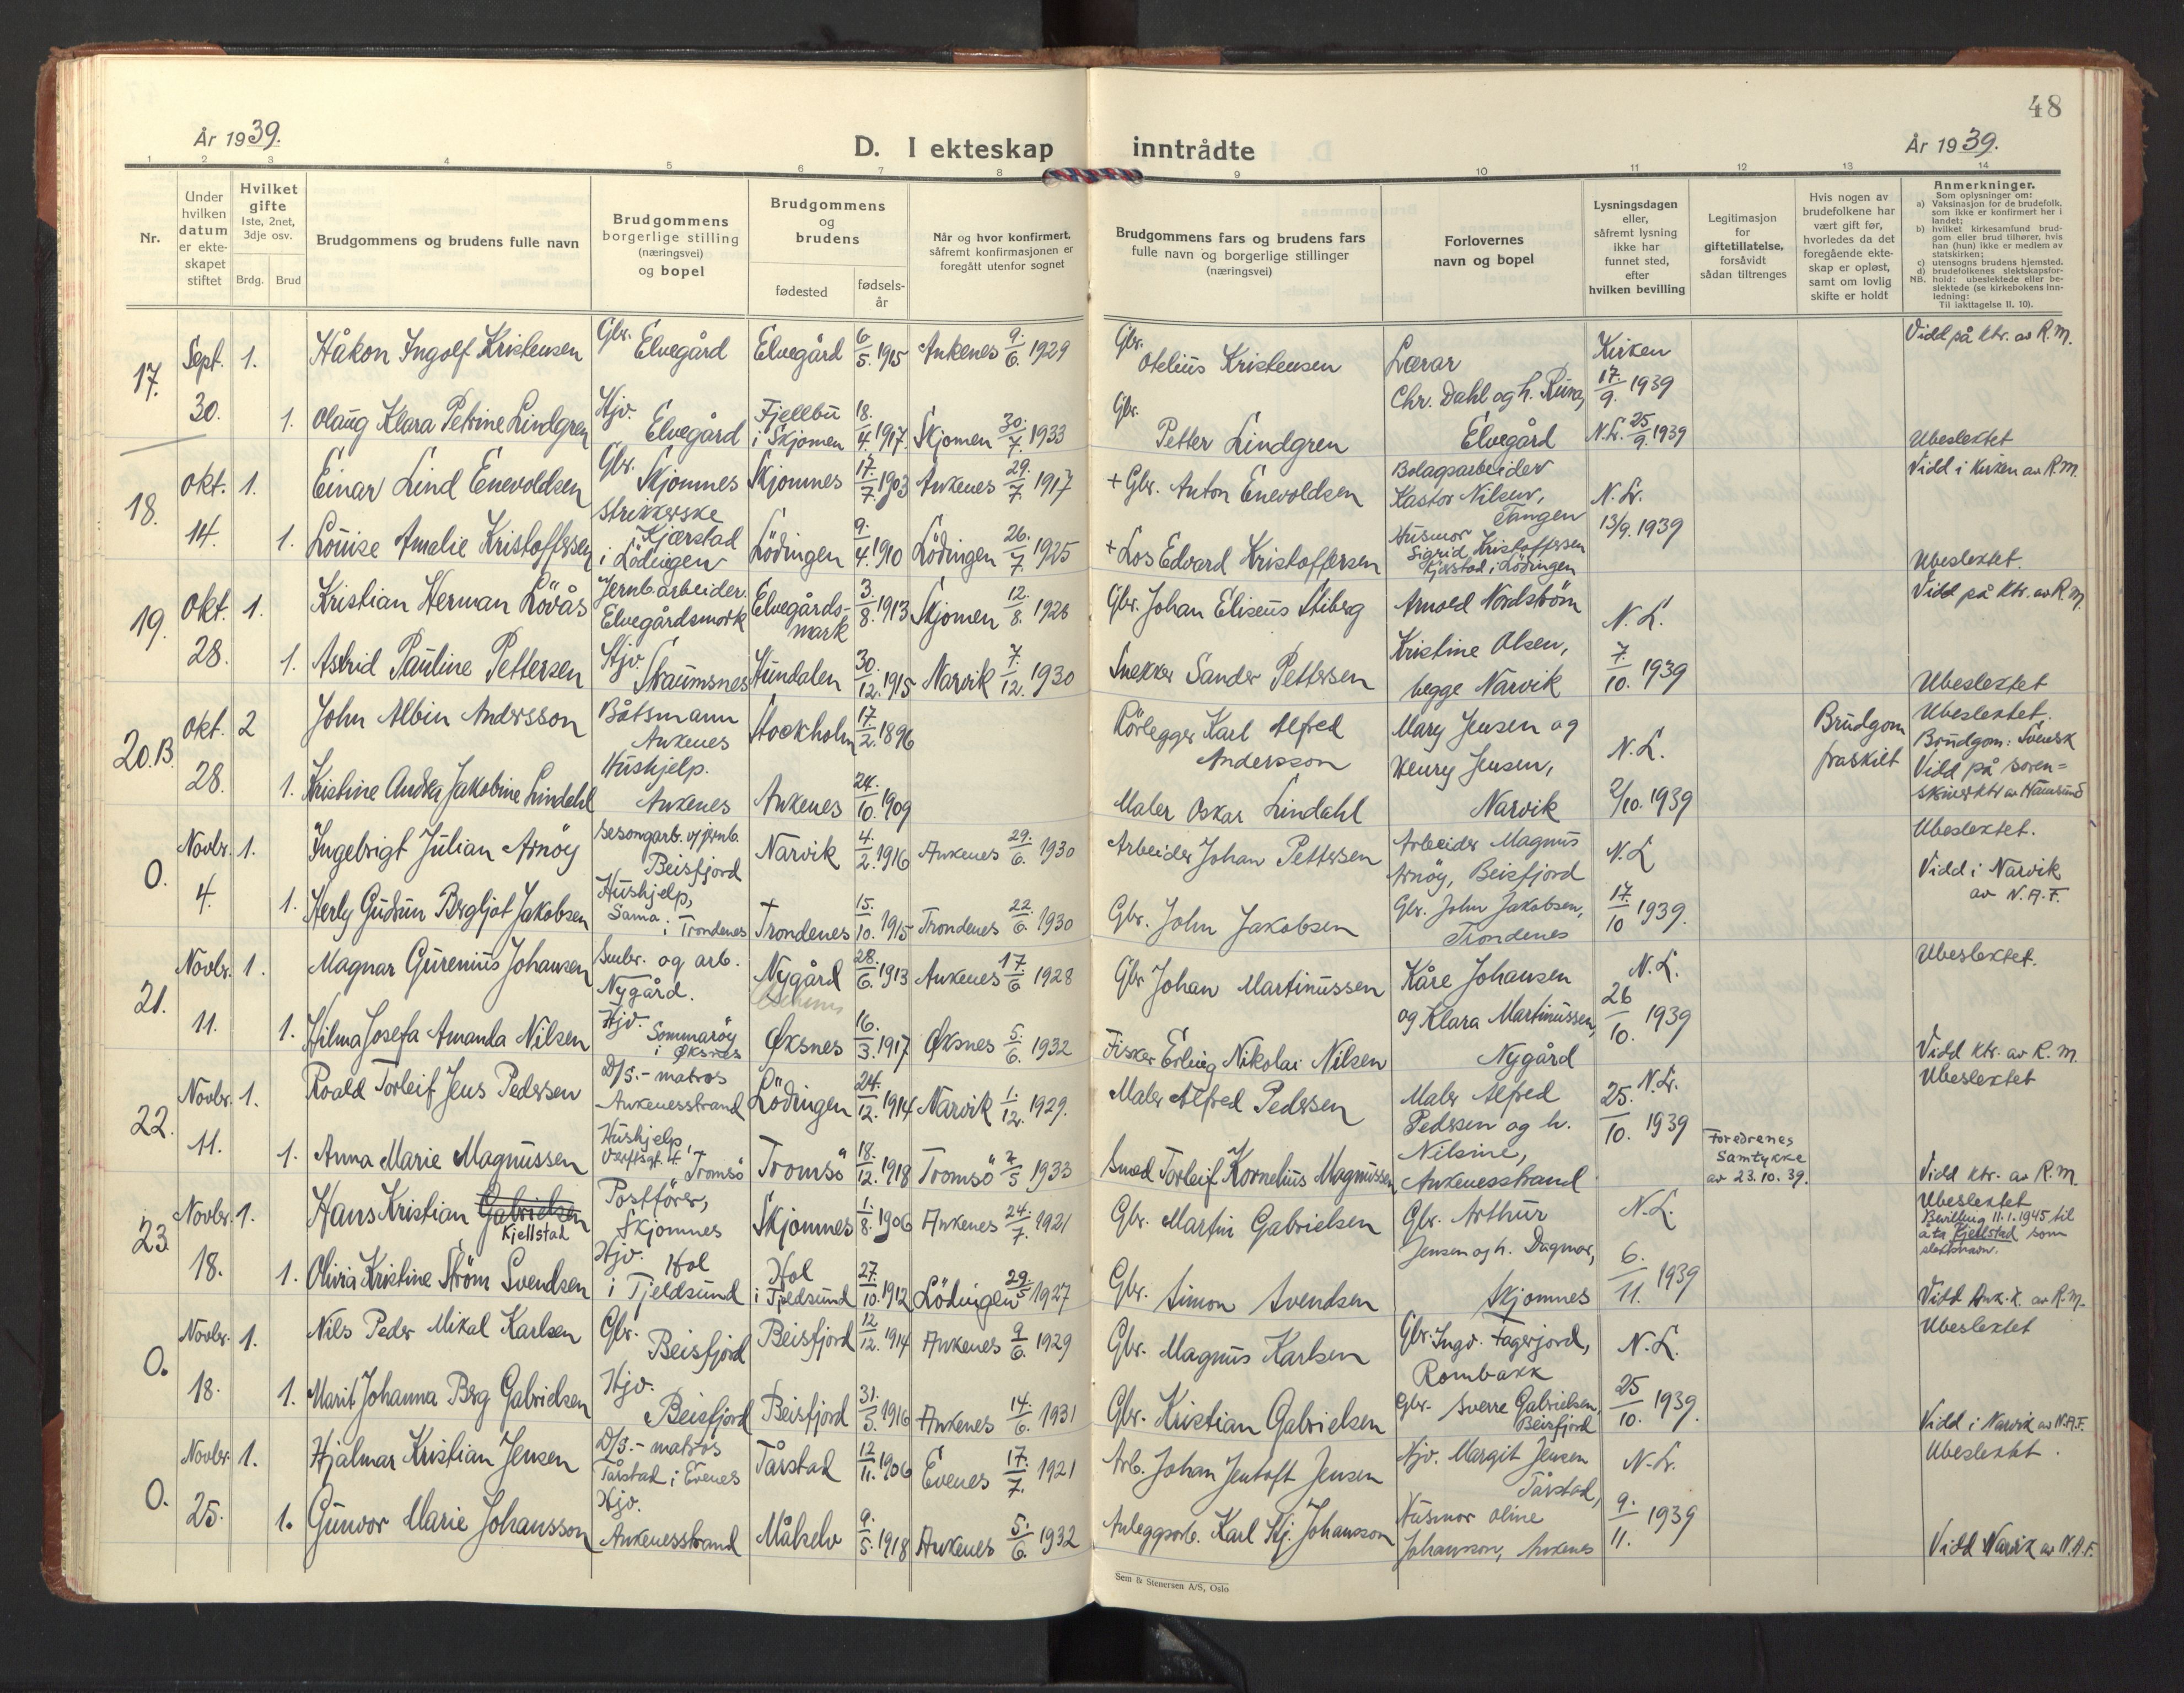 48
År 1939.
D. I ekteskap inntrådte
År 1939.
1 2 3 4 5 6 7 8 9 10 11 12 13 14
Nr.
Under hvilken datum er ekte-skapet stiftet
Hvilket gifte
1ste, 2net, 3dje osv.
Brdg. Brud
Brudgommens og brudens fulle navn
Brudgommens borgerlige stilling (næringsvei) og bopel
Brudgommens og brudens
fødested
fødsels-år
Når og hvor konfirmert, såfremt konfirmasjonen er foregått utenfor sognet
Brudgommens fars og brudens fars fulle navn og borgerlige stillinger (næringsvei)
Forlovernes navn og bopel
Lysningsdagen eller, såfremt lysning ikke har funnet sted, efter hvilken bevilling
Legitimasjon for giftetillatelse, forsåvidt sådan tiltrenges
Hvis nogen av brudefolkene har vært gift før, hvorledes da det foregående ekte-skap er opløst, samt om lovlig skifte er holdt
Anmerkninger.
Som oplysninger om:
a) Vaksinasjon for de brudefolk, som ikke er konfirmert her i landet;
b) hvilket kirkesamfund brud-gom eller brud tilhører, hvis han (hun) ikke er medlem av statskirken;
c) utensogns brudens hjemsted.
d) brudefolkenes slektskapsfor-hold: ubeslektede eller be-slektede (se kirkebokens inn-ledning:
NB. Til iakttagelse II. 10).
17. Sept. 30. 1. Håkon Ingolf Kristensen Gbr. Elvegård Elvegård 6/5. 1915 Ankenes 9./6. 1929 Gbr. Otelius Kristensen Lærar Chr. Dahl og h. Runa, Kirken 17./9. 1939 Vidd på ktr. av R.M.
1. Olaug Klara Petrine Lindgren Hjv. Elvegård Fjellbu i Skjomen 18./4. 1917. Skjomen 30./7. 1933 Gbr. Petter Lindgren Elvegård N.L. 25/9. 1939 Ubeslektet
18. Okt. 14. 1. Einar Lind Enevoldsen Gbr. Skjomnes Skjomnes 17./7. 1903 Ankenes 29./7. 1917 + Gbr. Anton Enevoldsen Bolagsarbeider Kastor Nilsen, Tangen N.L. 13/9. 1939 Vidd i kirken av R.M.
1. Louise Amalie Kristoffersen Strikkerske Kjærstad i Lödingen Lödingen 9./4. 1910 Lödingen 26./7. 1925 + Los Edvard Kristoffersen Husmor Sigrid Kristoffersen Kjærstad i Lödingen Ubeslektet.
19. Okt. 28. 1. Kristian Herman Lövås Jernb.arbeider. Elvegårdsmark Elvegårds-mark 3./8. 1913 Skjomen 12./8. 1926 Gbr. Johan Eliseus Stiberg Arnold Nordström N.L. Vidd på ktr. av R.M.
1. Astrid Pauline Pettersen Hjv. Straumsnes Hundalen 30./12. 1915 Narvik 7./12. 1930 Snekker Sander Pettersen Kristine Olsen, begge Narvik 7./10. 1939 Ubeslektet
20.B. Okt. 28. 2 John Albin Andersson Båtsmann Ankenes Stockholm 17./2. 1896 Rörlegger Karl Alfred Andersson Mary Jensen og Henry Jensen, N.L. Brudgom fraskilt Ubeslektet. Brudgom: Svensk
1. Kristine Andrea Jakobine Lindahl Hushjelp. Ankenes Ankenes 24./10. 1909 Maler Oskar Lindahl Narvik 2/10. 1939 Vidd på soren=skriverktr av Hamsund
0. Novbr. 4. 1. Ingebrigt Julian Arnöy Sesongarb. v/jernb. Beisfjord Narvik 4./2. 1916 Ankenes 29./6. 1930 Arbeider Johan Pettersen Arbeider Magnus Arnöy, Beisfjord N.L. Ubeslektet.
1. Herly Gudrun Bergljot Jakobsen Hushjelp, Sama i Trondenes Trondenes 15./10. 1915 Trondenes 22./6. 1930 Gbr. John Jakobsen Gbr. John Jakobsen, Trondenes 17./10 1939. Vidd i Narvik av N.A.F.
21. Novbr. 11. 1. Magnar Gurenius Johansen Småbr. og arb. Nygård. Nygård 28./6. 1913 Ankenes 17./6 1928 Gbr Johan Martinussen Kåre Johansen N.L. Ubeslektet.
1. Hilma Josefa Amanda Nilsen Hjv. Sommaröy i Øksnes Øksnes 16./3. 1917 Øksnes 5./6. 1932 Fisker Erling Nikolai Nilsen og Klara Martinussen, Nygård 26/10. 1939 Vidd ktr. av R.M.
22. Novbr. 11. 1. Roald Torleif Jens Pedersen D/S.-matros Ankenesstrand Lödingen 24./12. 1914 Narvik 1./12. 1929. Maler Alfred Pedersen Maler Alfred Pedersen og h. N.L. 25./10. 1939 Ubeslektet
1. Anna Marie Magnussen Hushjelp, Tromsö Tromsö 18./12. 1918 Tromsö 7/5 1933 Torleif Kornelius Magnussen Nilsine, Ankenesstrand Foreldrenes Samtykke av 23.10.39. Vidd ktr. av R.M.
23. Novbr. 18. 1. Hans Kristian Gabrielsen Kjellstad Postförer, Skjomnes Skjomnes 1./8. 1906 Ankenes 24./7. 1921 Gbr. Martin Gabrielsen Gbr. Arthur Jensen og h. Dagmar, N.L. Ubeslektet Bevilling 11.1.1945 til å ta Kjellstad som slektsnavn.
1. Olivia Kristine Ström Svendsen Hjv. Hol i Tjeldsund Hol i Tjeldsund 27./10. 1912 Lödingen 29./5 1927 Gbr. Simon Svendsen Skjomnes 6./11. 1939 Vidd Ank.k. av R.M.
0. Novbr. 18. 1. Nils Peder Mikal Karlsen Gbr. Beisfjord Beisfjord 12/12. 1914 Ankenes 9/6. 1929 Gbr. Magnus Karlsen Gbr. Ingv. Fagerjord, Rombakk N.L. Ubeslektet
1. Marit Johanna Berg Gabrielsen Hjv. Beisfjord Beisfjord 31./5. 1916 Ankenes 14./6. 1931 Gbr. Kristian Gabrielsen Gbr. Sverre Gabrielsen, Beisfjord 25/10. 1939. Vidd i Narvik av N.A.F.
0. Novbr. 25. 1. Hjalmar Kristian Jensen D/S.-matros Tårstad i Evenes Tårstad 12/11. 1906 Evenes 17./7. 1921 Arb. Johan Jentoft Jensen Hjv. Margit Jensen Tårstad, N.L. Ubeslektet.
1. Gunvor Marie Johansson Hjv. Ankenesstrand Målselv 9./5. 1918 Ankenes 5./6. 1932 Anleggsarb. Karl Hj. Johansson Husmor Oline Johansson, Ankenes 9./11. 1939 Vidd Narvik av N.A.F.
Sem & Stenersen A/S, Oslo